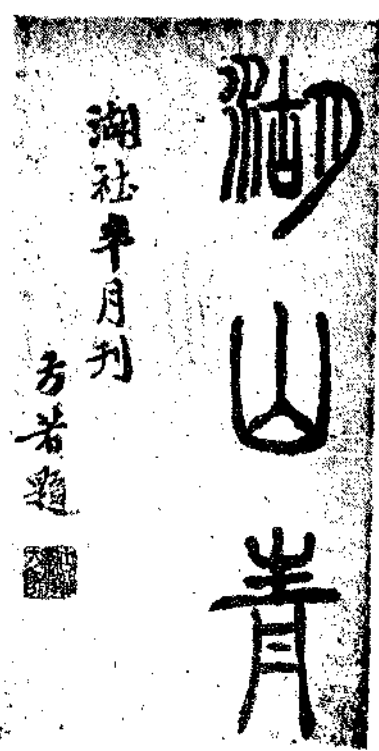 湖山青
湖社半月刊
方若題